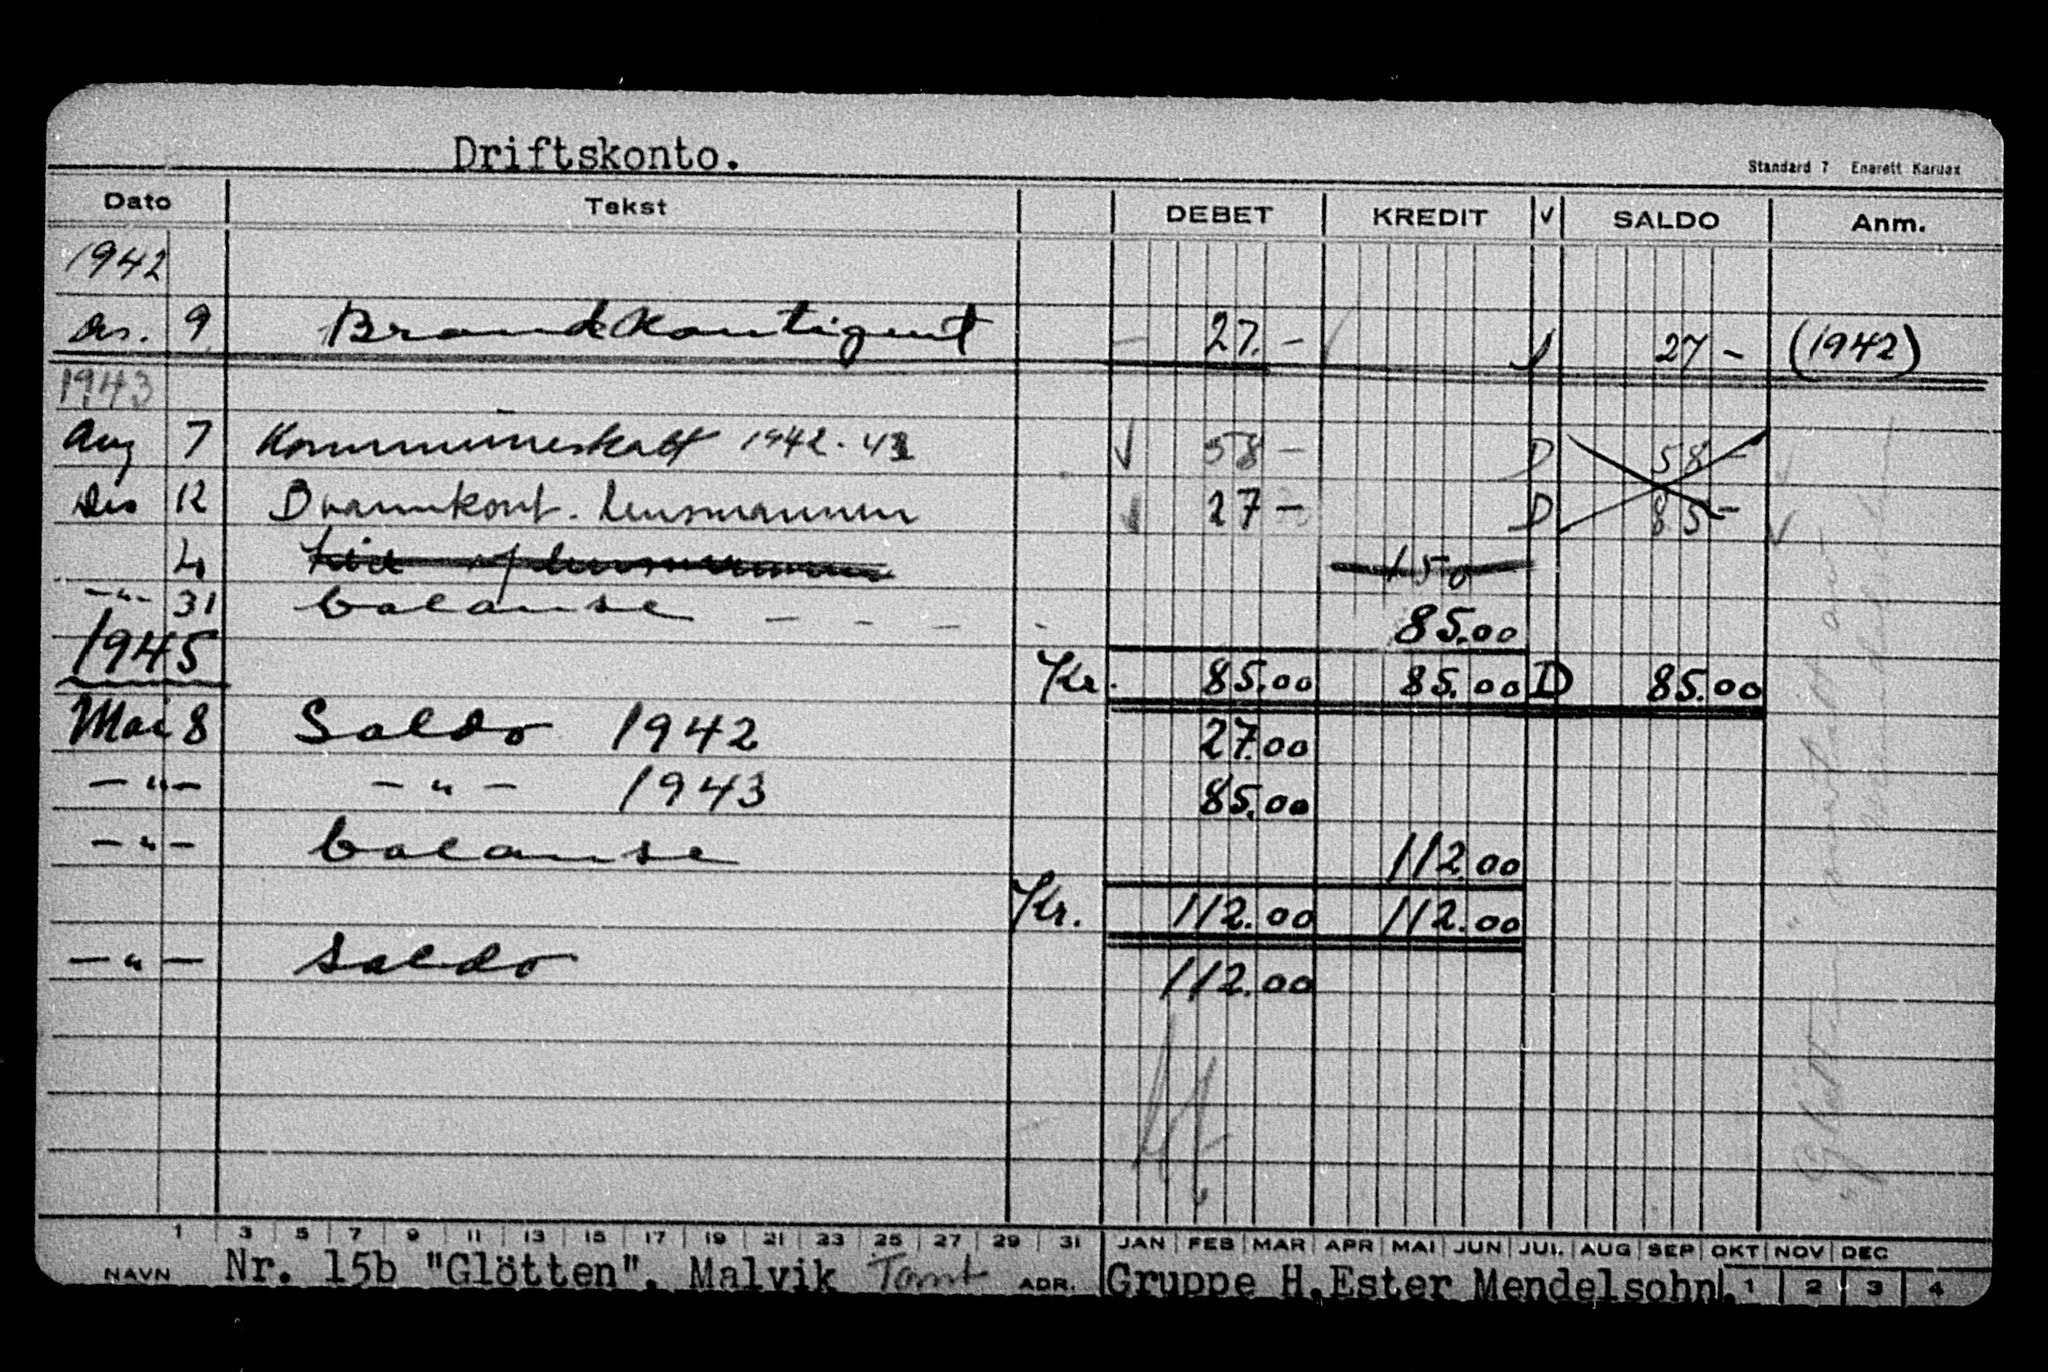 Driftskonto.
Standard 7 Enerett Karuax
Dato Tekst DEBET KREDIT √ SALDO Anm.
1942
Des. 9. Brandkontigent 27.- 27- (1942)
1943
Aug 7 Kommuneskatt 1942-43 √ 58- D 58-
Des 12 Brannkont. Lensmannen 27- D 85-
4 150
-"- 31 balanse - - - - 85.00
1945 Kr. 85.00 85.00 D 85.00
Mai 8 Saldo 1942 27.00
-"- -"- 1943 85.00
-"- balanse 112.00
Kr. 112.00 112.00
-"- Saldo 112.00
"Glötten"
1 3 5 7 9 11 13 15 17 19 21 23 25 27 29 31 JAN FEB MAR APR MAI JUN JUL. AUG SEP OKT NOV DEC
NAVN Nr. 15b "Glötten". Malvik Tomt ADR. Gruppe H. Ester Mendelsohn. 1 2 3 4